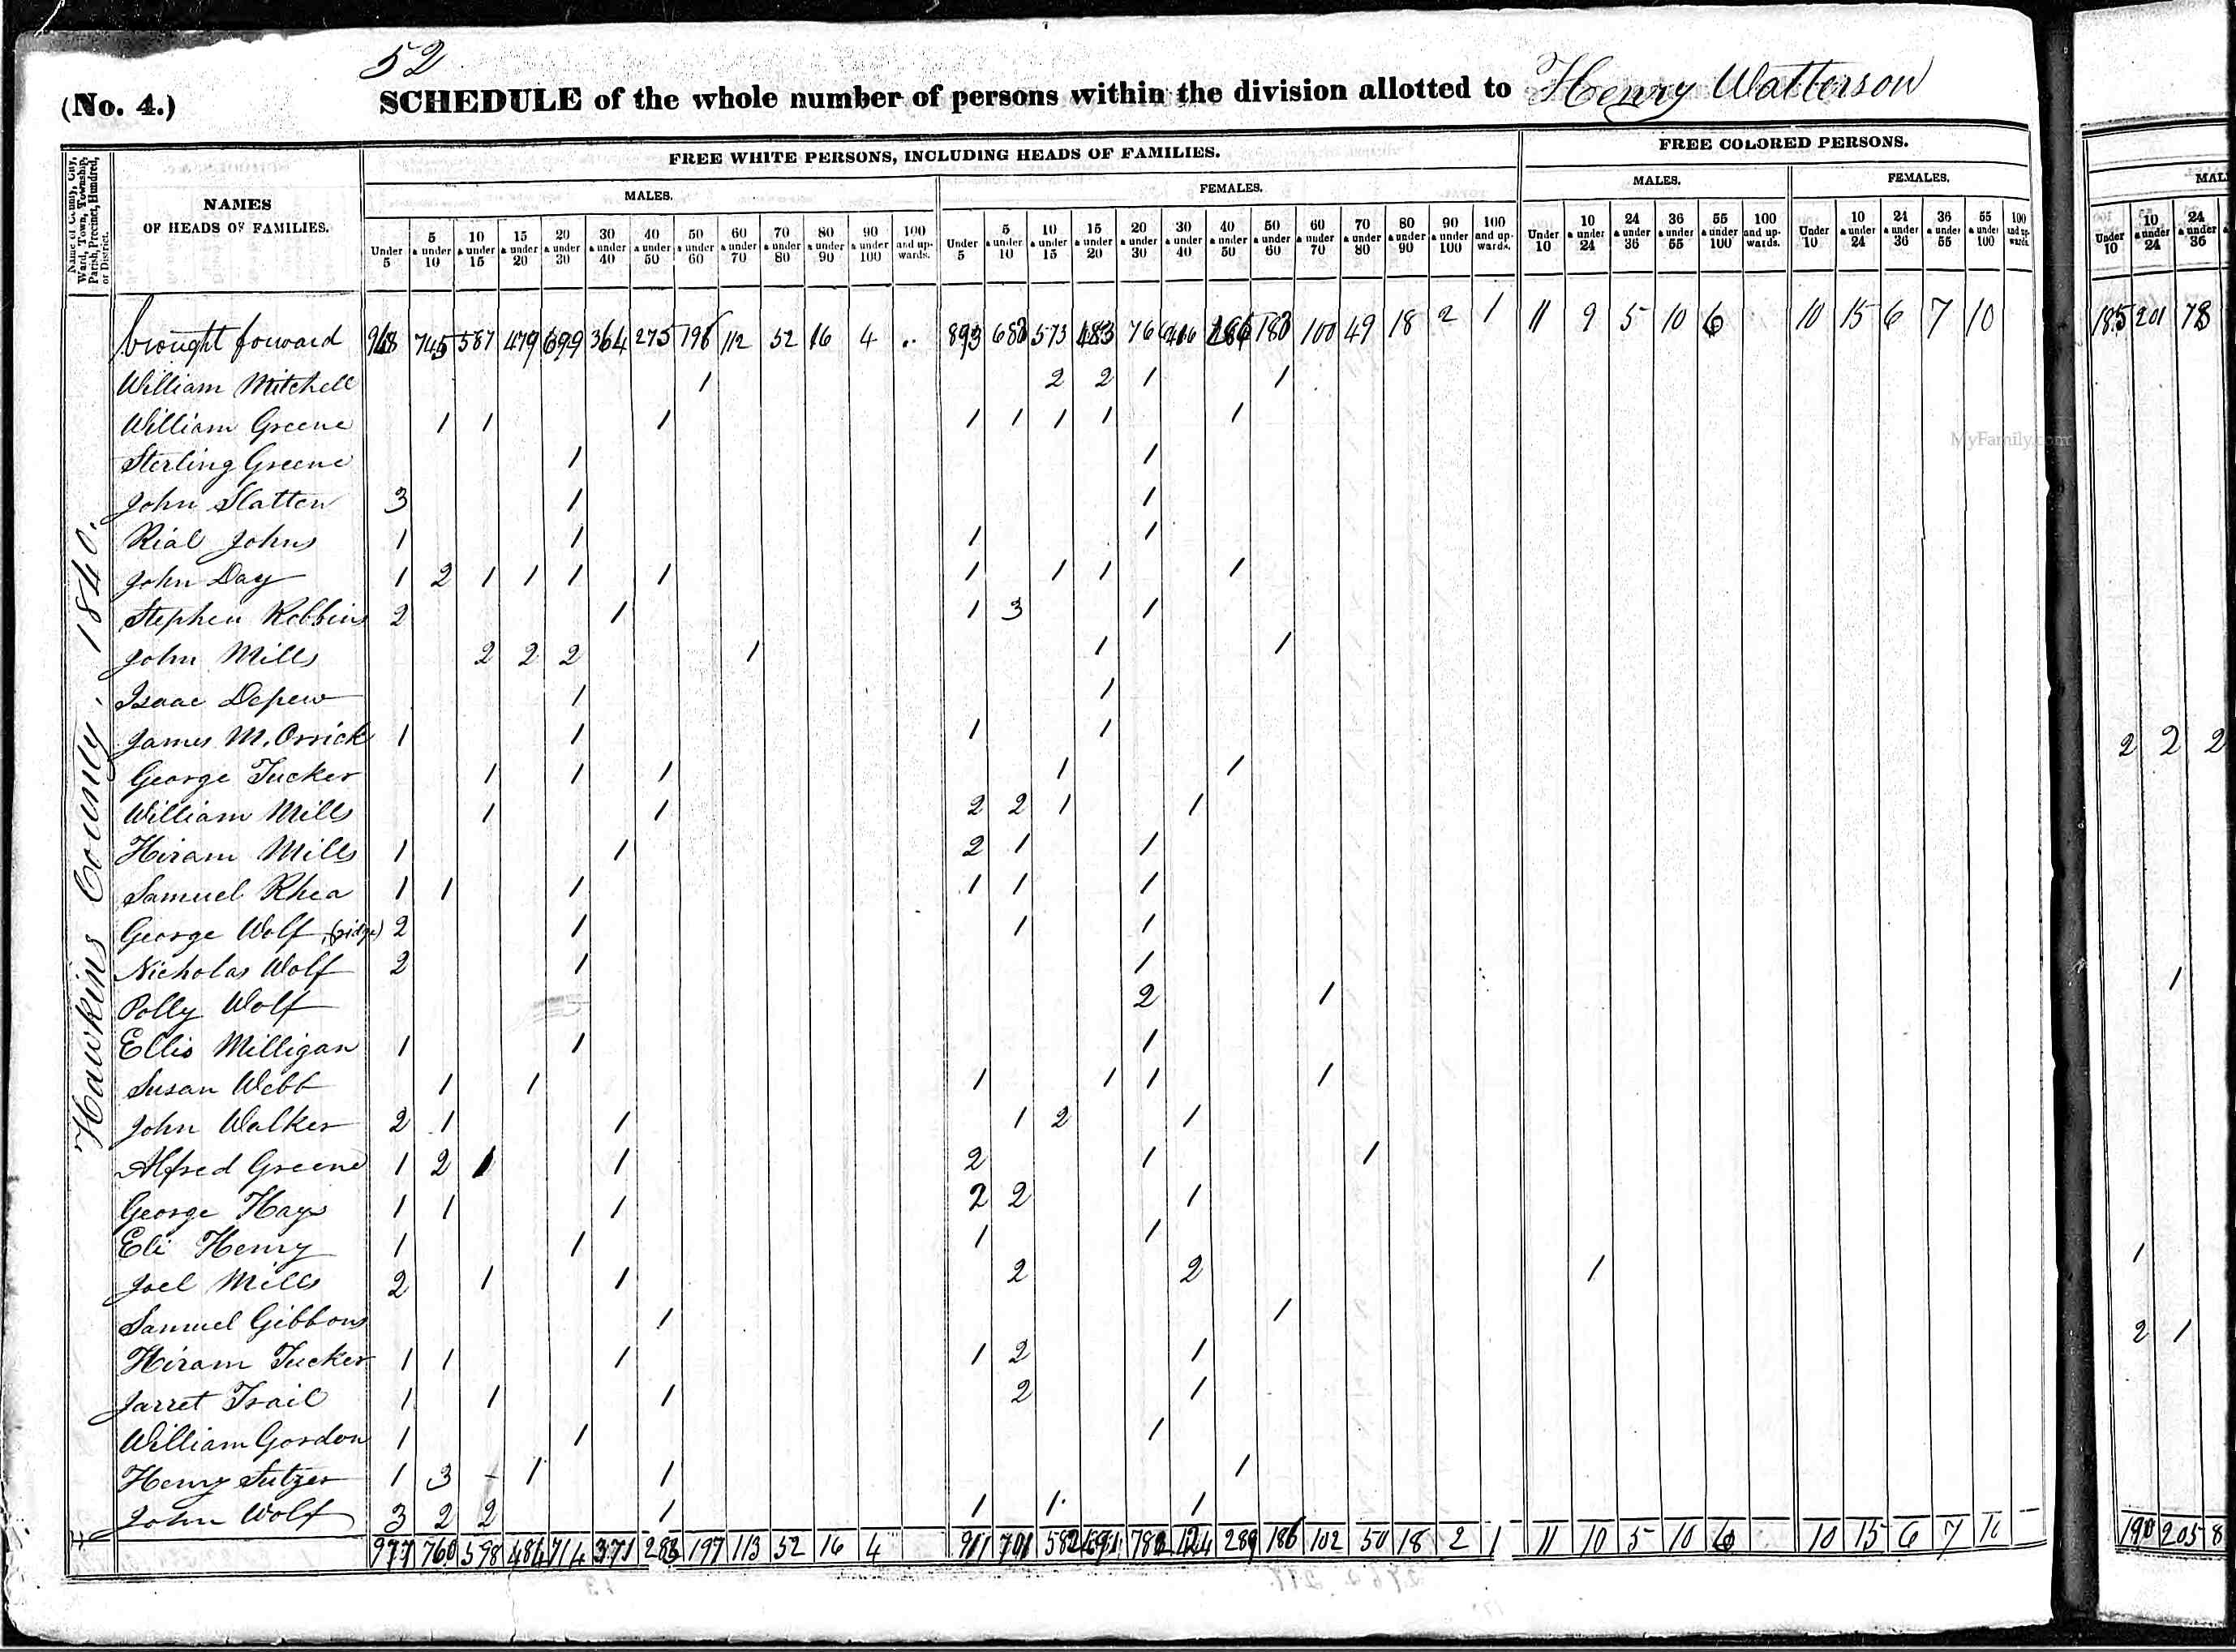 52
(No. 4.) SCHEDULE of the whole number of persons within the division allotted to Henry Watterson
Name of County, City, Ward, Town, Township, Parish, Precinct, Hundred, or District.
NAMES OF HEADS OF FAMILIES.
FREE WHITE PERSONS, INCLUDING HEADS OF FAMILIES.
FREE COLORED PERSONS.
MALES. FEMALES. MALES. FEMALES. MAL
Under 5 5 & under 10 10 & under 15 15 & under 20 20 & under 30 30 & under 40 40 & under 50 50 & under 60 60 & under 70 70 & under 80 80 & under 90 90 & under 100 100 and upwards. Under 5 5 & under 10 10 & under 15 15 & under 20 20 & under 30 30 & under 40 40 & under 50 50 & under 60 60 & under 70 70 & under 80 80 & under 90 90 & under 100 100 and upwards. Under 10 10 & under 24 24 & under 36 36 & under 55 55 & under 100 100 and upwards. Under 10 10 & under 24 24 & under 36 36 & under 55 55 & under 100 100 and upwards. Under 10 10 & under 24 24 & under 36
Hawkins County, 1840.
brought forward 968 745 587 479 699 364 275 196 112 52 16 4 .. 893 683 573 483 766 416 286 183 100 49 18 2 1 11 9 5 10 6 10 15 6 7 10 185 201 78
William Mitchell 1 2 2 1 1
William Greene 1 1 1 1 1 1 1 1
MyFamily.com
Sterling Greene 1 1
John Slatten 3 1 1
Rial Johns 1 1 1 1
John Day 1 2 1 1 1 1 1 1 1 1
Stephen Robbins 2 1 1 3 1
John Mills 2 2 2 1 1 1
Isaac Depew 1 1
James M. Orrick 1 1 1 1 2 2 2
George Tucker 1 1 1 1 1
William Mills 1 1 2 2 1 1
Hiram Mills 1 1 2 1 1
Samuel Rhea 1 1 1 1 1 1
George Wolf, (ridge) 2 1 1 1
Nicholas Wolf 2 1 1 1
Polly Wolf 2 1
Ellis Milligan 1 1 1
Susan Webb 1 1 1 1 1 1
John Walker 2 1 1 1 2 1
Alfred Greene 1 2 1 1 2 1 1
George Hays 1 1 1 2 2 1
Eli Henry 1 1 1 1 1
Joel Mills 2 1 1 2 2 1
Samuel Gibbons 1 1 2 1
Hiram Tucker 1 1 1 1 2 1
Jarret Trail 1 1 1 2 1
William Gordon 1 1 1
Henry Sutzer 1 3 - 1 1 1
John Wolf 3 2 2 1 1 1 1
977 760 598 484 714 371 283 197 113 52 16 4 911 701 582 491 782 424 289 186 102 50 18 2 1 11 10 5 10 6 10 15 6 7 10 190 205 8